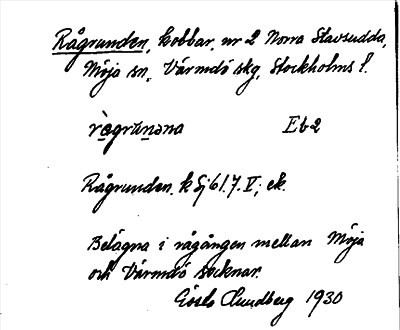 Rågrunden, kobbar, nr 2 Norra Stavsudda,
Möja sn, Värmdö skg, Stockholms l.
Eb2
Rågrunden. k Sj 61.7.V; ek.
Belägna i rågången mellan Möja
och Värmdö socknar.
Gösta Lundberg 1930